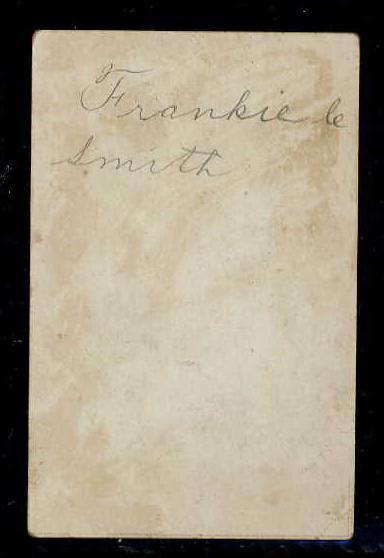 Frankie le
Smith